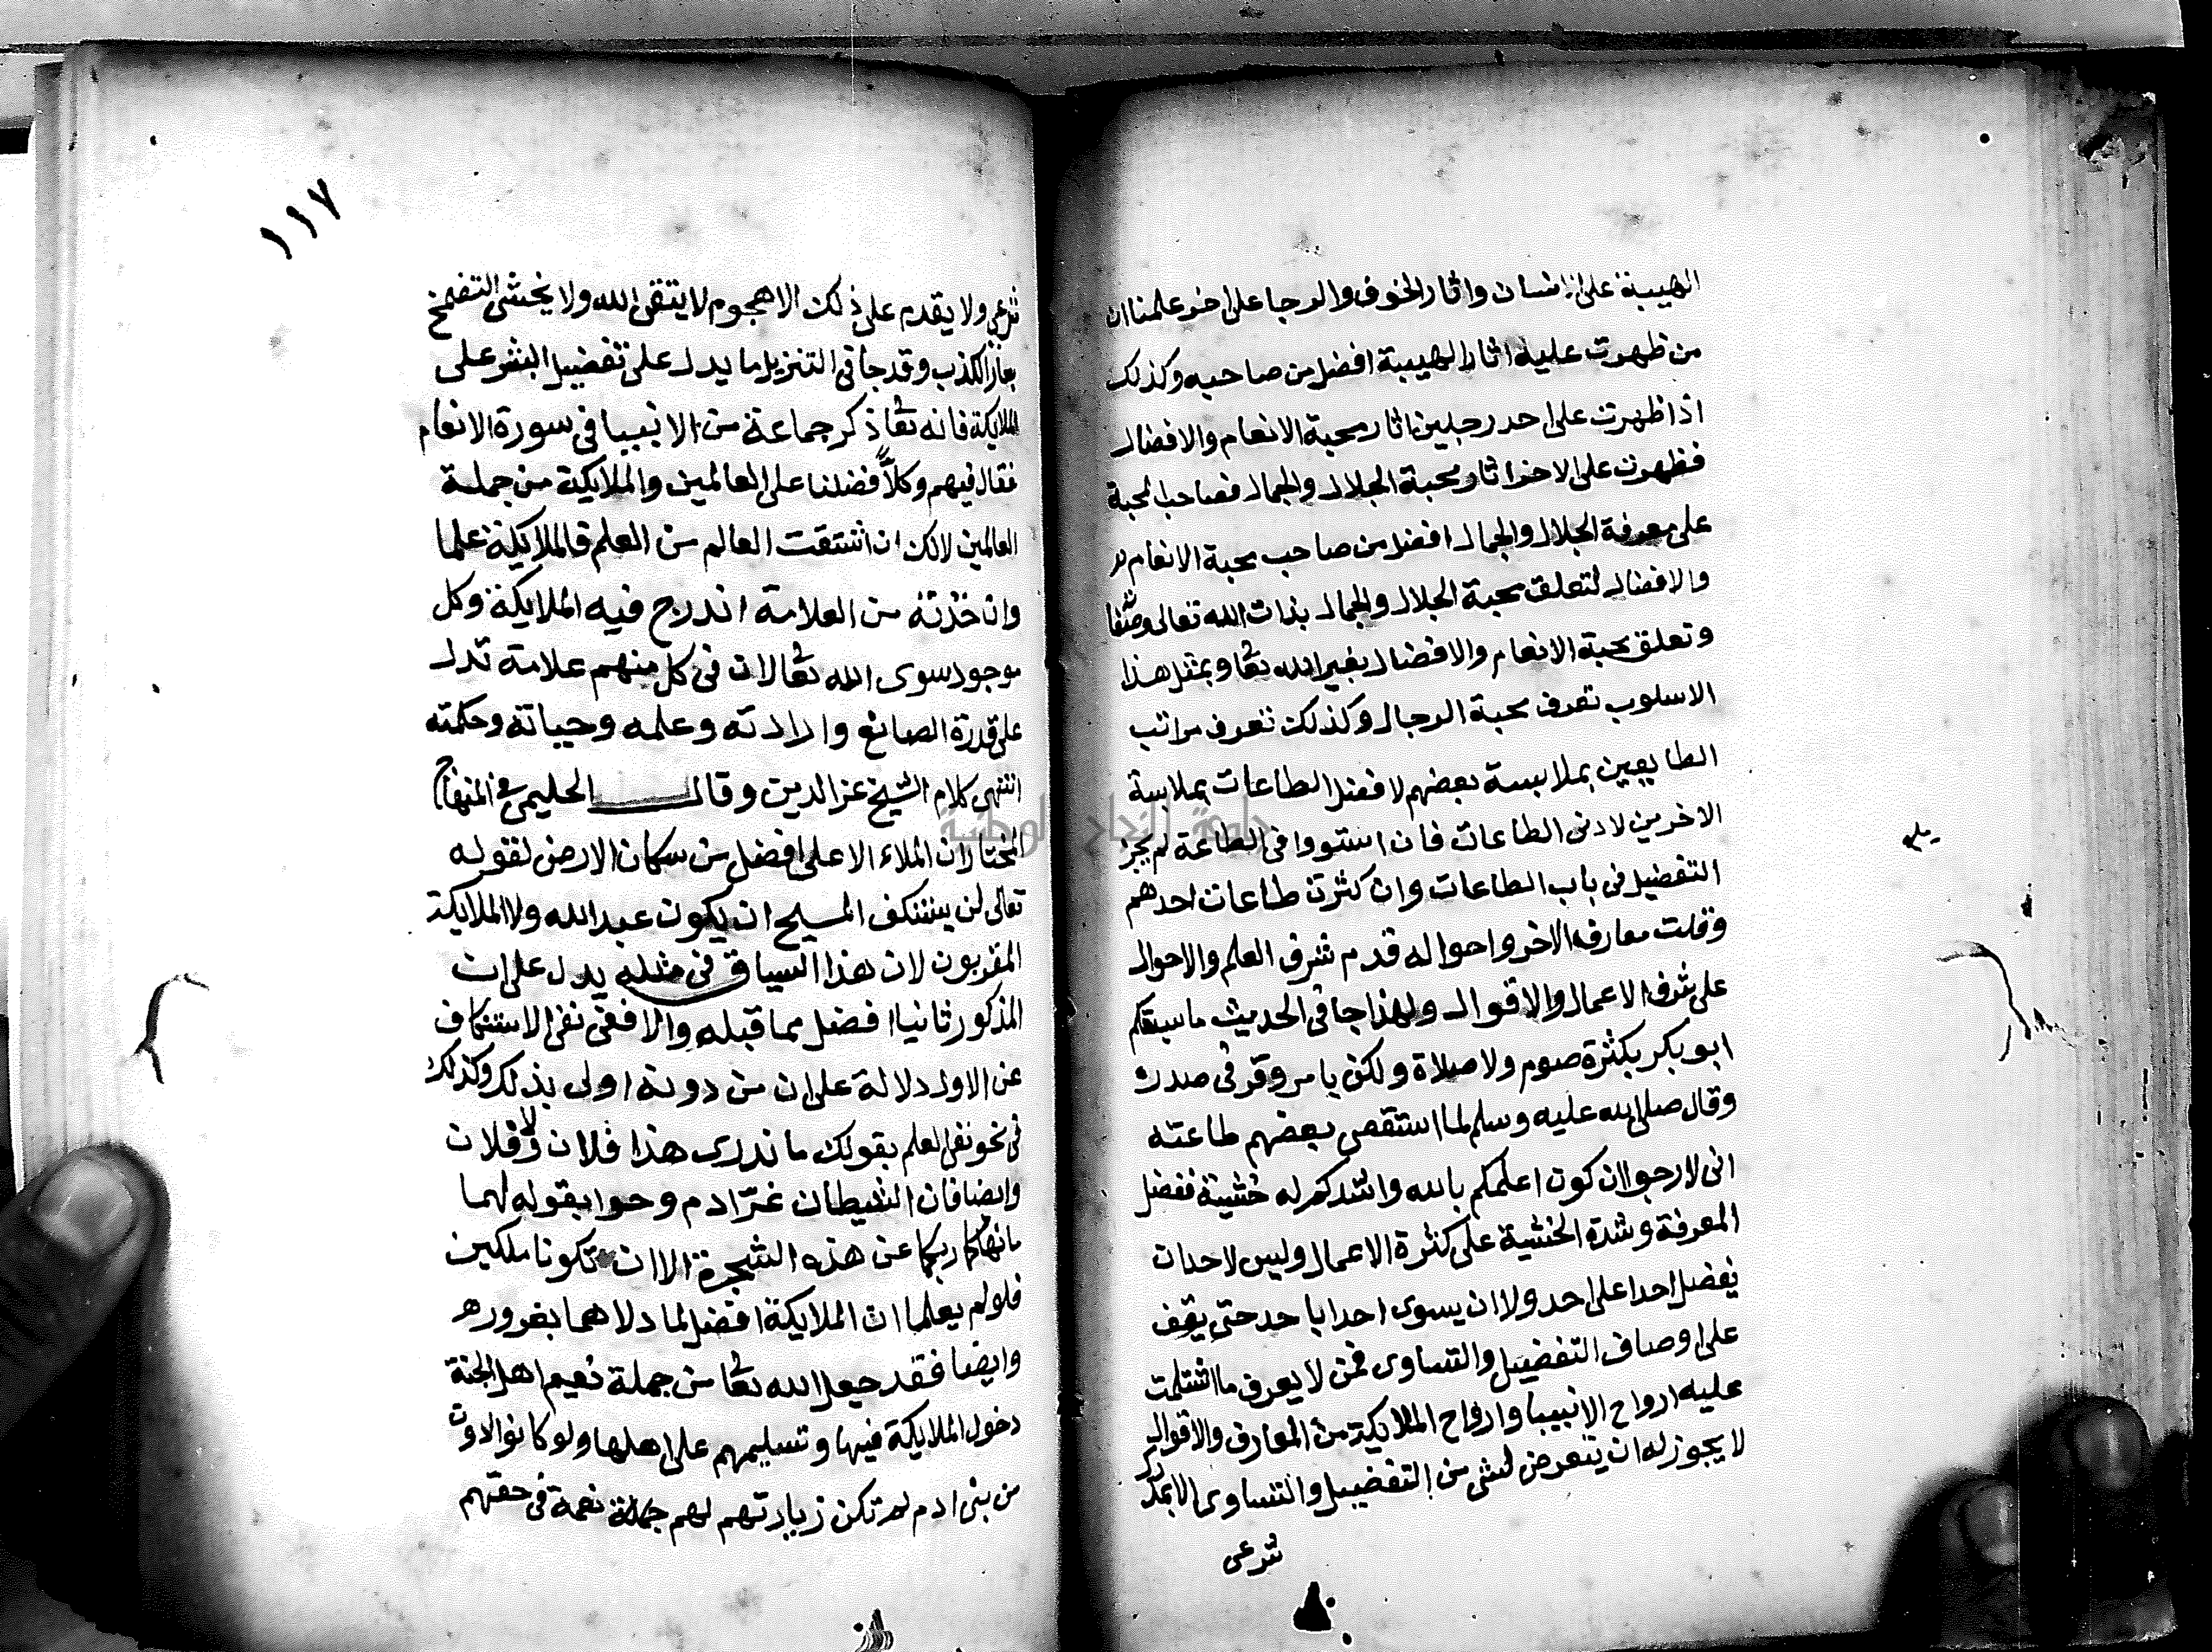 الهيبة على انسان واثار الخوف والرجا على اخر علمنا ان
من ظهرت عليه اثار الهيبة افضل من صاحبه وكذلك
اذا ظهرت على احد رجلين اثار محبة الانعام والافضال
فظهرت على الاخر اثار محبة الجلال والجمال فصاحب المحبة
على معرفة الجلال والجمال افضل من صاحب محبة الانعام
والافضال لتعلق محبة الجلال والجمال بذات الله تعالى وصفا
وتعلق محبة الانعام والافضال بغير الله تعا وبمثل هذا
الاسلوب تعرف محبة الرجال وكذلك تعرف مراتب
الطايعين بملابسة بعضهم لافضل الطاعات بملابسة
الاخرين لادنى الطاعات فان استووا فى الطاعة لم يجز
التفضيل فى باب الطاعات وان كثرت طاعات احدهم
وقلت معارف الاخر واحواله قدم شرف العلم والاحوال
على شرف الاعمال والاقوال ولهذا جا فى الحديث ما سبقكم
ابو بكر بكثرة صوم ولا صلاة ولكن بامر وقر فى صدره
وقال صلى الله عليه وسلم لما استقصى بعضهم طاعته
انى لارجوا ان اكون اعلمكم بالله واشدكم له خشية ففضل
المعرفة وشدة الخشية على كثرة الاعمال وليس لاحد ان
يفضل احدا على احد ولا ان يسوى احدا باحد حتى يقف
على اوصاف التفضيل والتساوى فمن لا يعرف ما اشتملت
عليه ارواح الانبيا وارواح الملايكة من المعارف والاقوال
لا يجوز له ان يتعرض لشى من التفضيل والتساوى الا بمدرك
شرعى
١١٧
شرعى ولا يقدم على ذلك الا هجوم لا يتقى الله ولا يخشى التضمخ
بعار الكذب وقد جا فى التنزيل ما يدل على تفضيل البشر على
الملايكة فانه تعا ذكر جماعة من الانبيا فى سورة الانعام
فقال فيهم وكلا فضلنا على العالمين والملايكة من جملة
العالمين لانك ان اشتقت العالم من العلم فالملايكة علما
وان اخذته من العلامة اندرج فيه الملايكة وكل
موجود سوى الله تعا لان فى كل منهم علامة تدل
على قدرة الصانع وارادته وعلمه وحياته وحكمته
انتهى كلام الشيخ عز الدين وقال الحليمى فى المنهاج
المختار ان الملاء الاعلى افضل من سكان الارض لقوله
تعالى لن يستنكف المسيح ان يكون عبدا لله ولا الملايكة
المقربون لان هذا السياق فى مثله يدل على ان
المذكور ثانيا افضل مما قبله والا ففى نفى الاستنكاف
عن الاول دلالة على ان من دونه اولى بذلك وكذلك
فى نحو نفى العلم بقولك ما ندرى هذا فلان ولا فلان
وايضا فان الشيطان غرّ ادم وحوا بقوله لهما
ما نهاكما ربكما عن هذه الشجرة الا ان تكونا ملكين
فلو لم يعلما ان الملايكة افضل لما دلاهما بغروره
وايضا فقد جعل الله تعا من جملة نعيم اهل الجنة
دخول الملايكة فيها وتسليمهم على اهلها ولو كانوا لادون
من بنى ادم لم تكن زيارتهم لهم جملة نعمة فى حقهم
جامعة النجاح الوطنية